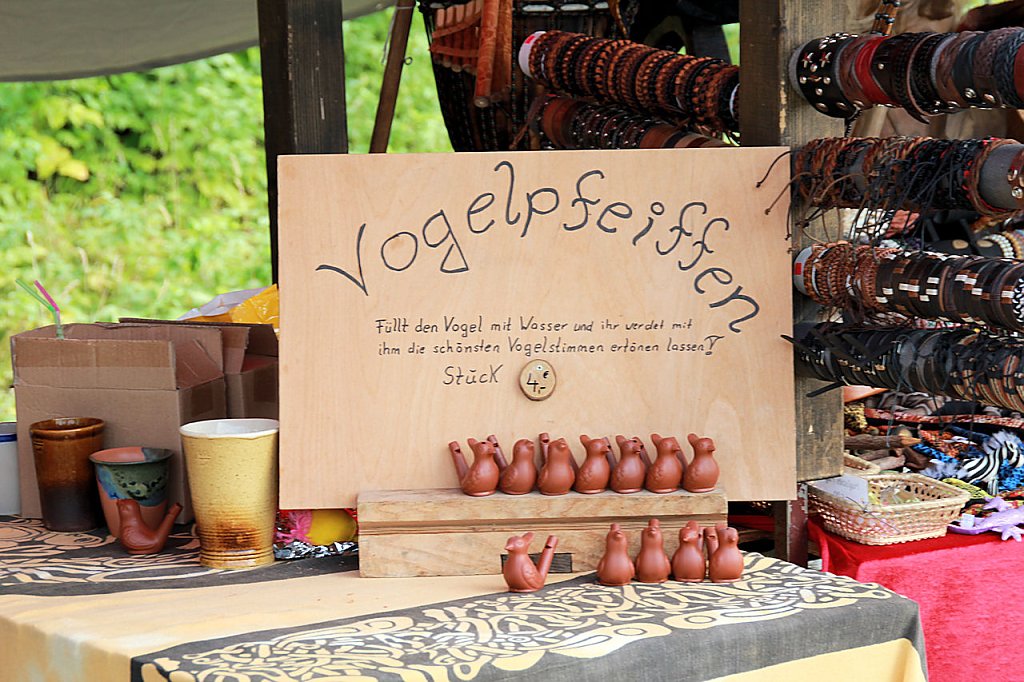 Vogelpfeiffen
Füllt den Vogel mit Wasser und ihr werdet mit
ihm die schönsten Vogelstimmen ertönen lassen!
Stück 4,- €